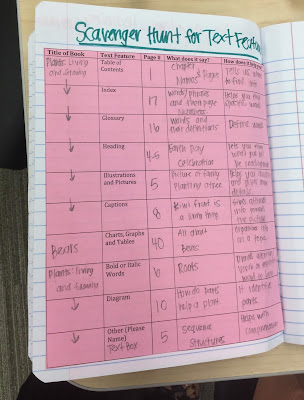 Scavenger Hunt for Text Features
Title of Book Text Feature Page # What does it say? How does it help
Plants: Living and Growing Table of Contents 1 Chapter Names & Pages Tells us where to find
Index 17 Words/phrases and their page numbers Helps you find specific words
Glossary 16 Words and their definitions Defines words
Heading 4-5 Earth Day Celebration lets you know what you'll be reading
Illustrations and Pictures 5 Picture of family planting a tree Helps you
Captions 8 Kiwi fruit is a living thing the picture
Bears Charts, Graphs and Tables 40 All about Bears organizes info on a topic
Plants: living and growing Bold or Italic Words 6 Roots
Diagram 10 How do leaves help a plant It identifies parts
Other (Please Name) Text Box 5 Sequence Structures Helps with comprehension